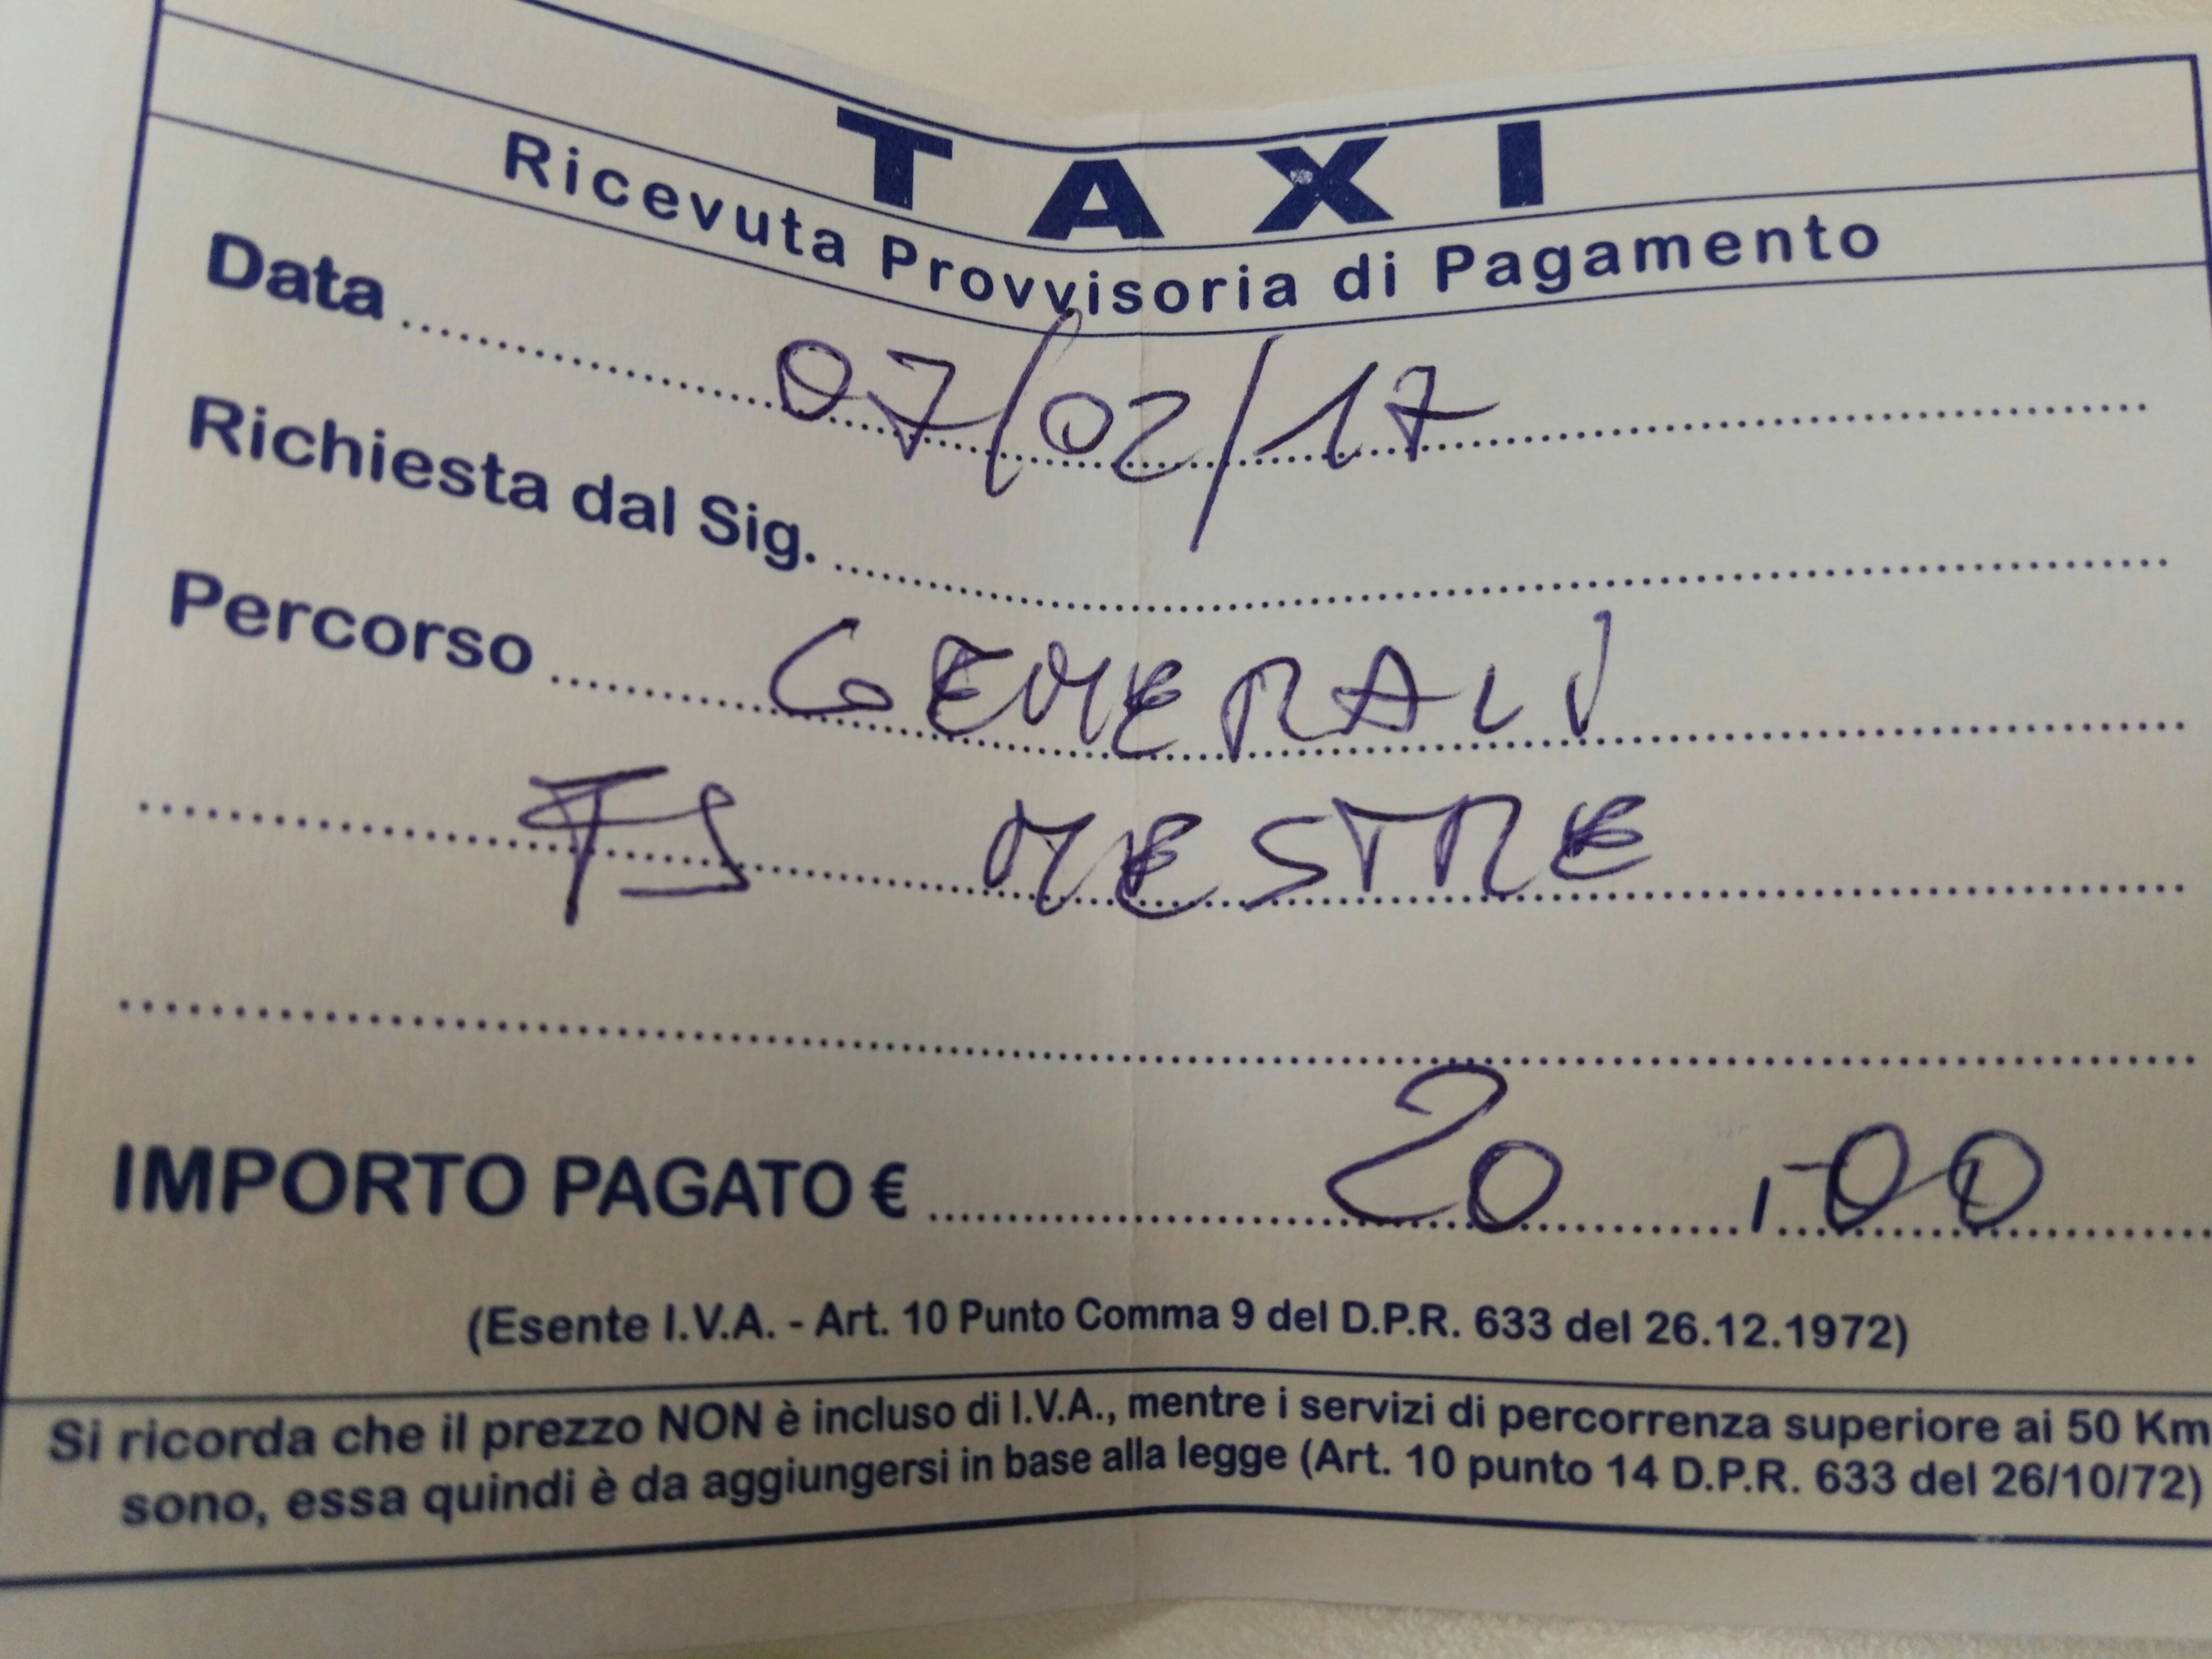 TAXI
Ricevuta Provvisoria di Pagamento
Data 07/02/17
Richiesta dal Sig.
Percorso GENERALI
FS MESTRE
IMPORTO PAGATO € 20,00
(Esente I.V.A. - Art. 10 Punto Comma 9 del D.P.R. 633 del 26.12.1972)
Si ricorda che il prezzo NON è incluso di I.V.A., mentre i servizi di percorrenza superiore ai 50 Km
sono, essa quindi è da aggiungersi in base alla legge (Art. 10 punto 14 D.P.R. 633 del 26/10/72)